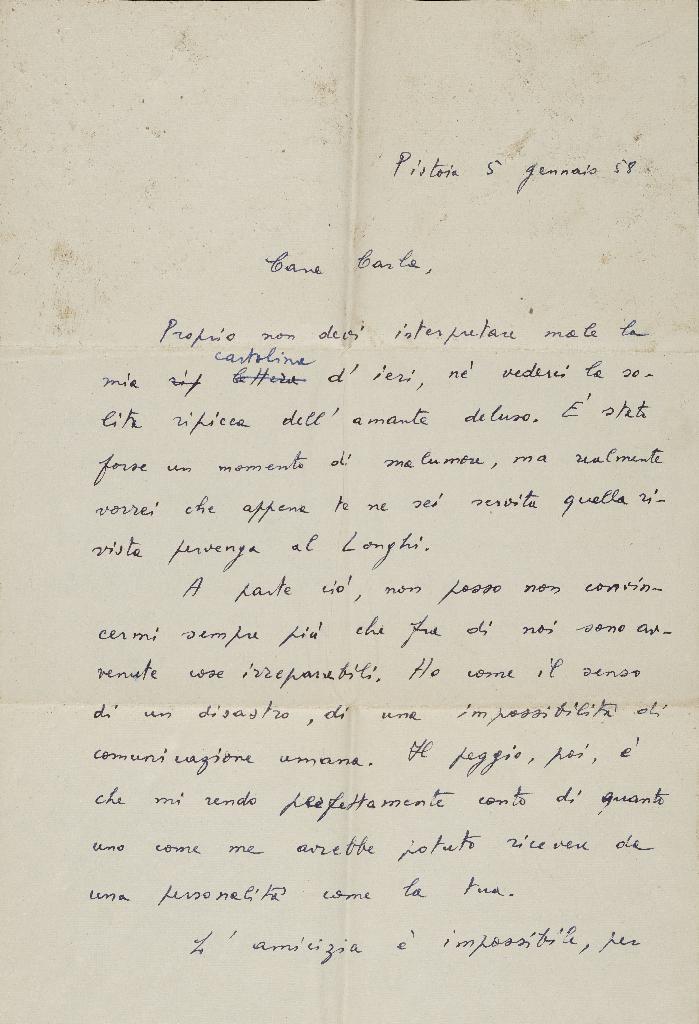 Pistoia 5 gennaio 58
Cara Carla,
Proprio non devi interpretare male la
cartolina
mia rip lettera d' ieri, né vederci la so-
lita ripicca dell' amante deluso. E' stato
forse un momento di malumore, ma realmente
vorrei che appena te ne sei servita quella ri-
vista pervenga al Longhi.
A parte ciò, non posso non convin-
cermi sempre più che fra di noi sono av-
venute cose irreparabili. Ho come il senso
di un disastro, di una impossibilità di
comunicazione umana. Il peggio, poi, è
che mi rendo perfettamente conto di quanto
uno come me avrebbe potuto ricevere da
una personalità come la tua.
L' amicizia è impossibile, per